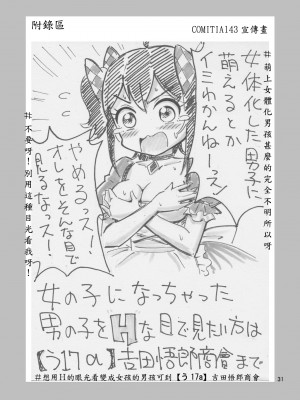 附錄區
COMITIA143 宣傳畫
女体化した男子に
萌えるとか
イミわかんねーっス!
#萌上女體化男孩甚麼的完全不明所以呀
やめるっス!
オレをそんな目で
見るなっス!
#不要呀!別用這種目光看我呀!
女の子になっちゃった
男の子をHな目で見たい方は
【う17a】吉田悟郎商會まで
#想用H的眼光看變成女孩的男孩可到【う 17a】吉田悟郎商會
31